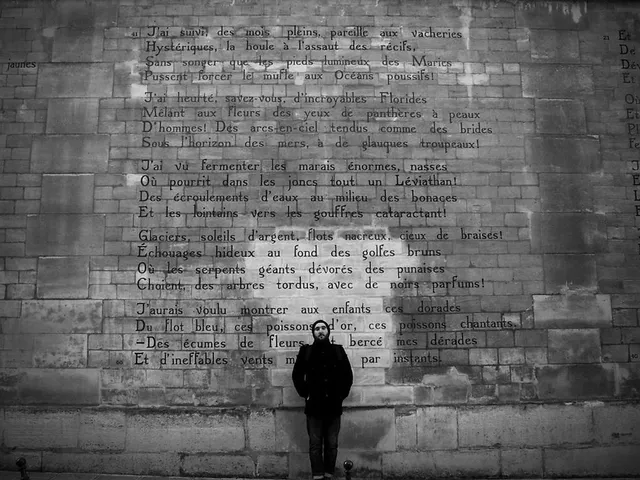 « J'ai suivi, des mois pleins, pareille aux vacheries
Hystériques, la houle à l'assaut des récifs,
Sans songer que les pieds lumineux des Maries
Pussent forcer le mufle aux Océans poussifs!
J'ai heurté, savez-vous, d'incroyables Florides
Mêlant aux fleurs des yeux de panthères à peaux
D'hommes! Des arcs-en-ciel tendus comme des brides
Sous l'horizon des mers, à de glauques troupeaux!
J'ai vu fermenter les marais énormes, nasses
Où pourrit dans les joncs tout un Léviathan!
Des écroulements d'eaux au milieu des bonaces
Et les lointains vers les gouffres cataractant!
Glaciers, soleils d'argent, flots nacreux, cieux de braises!
Échouages hideux au fond des golfes bruns
Où les serpents géants dévorés des punaises
Choient, des arbres tordus, avec de noirs parfums!
J'aurais voulu montrer aux enfants ces dorades
Du flot bleu, ces poissons d'or, ces poissons chantants.
—Des écumes de fleurs bercé mes dérades
Et d'ineffables vents par instants.
jaunes